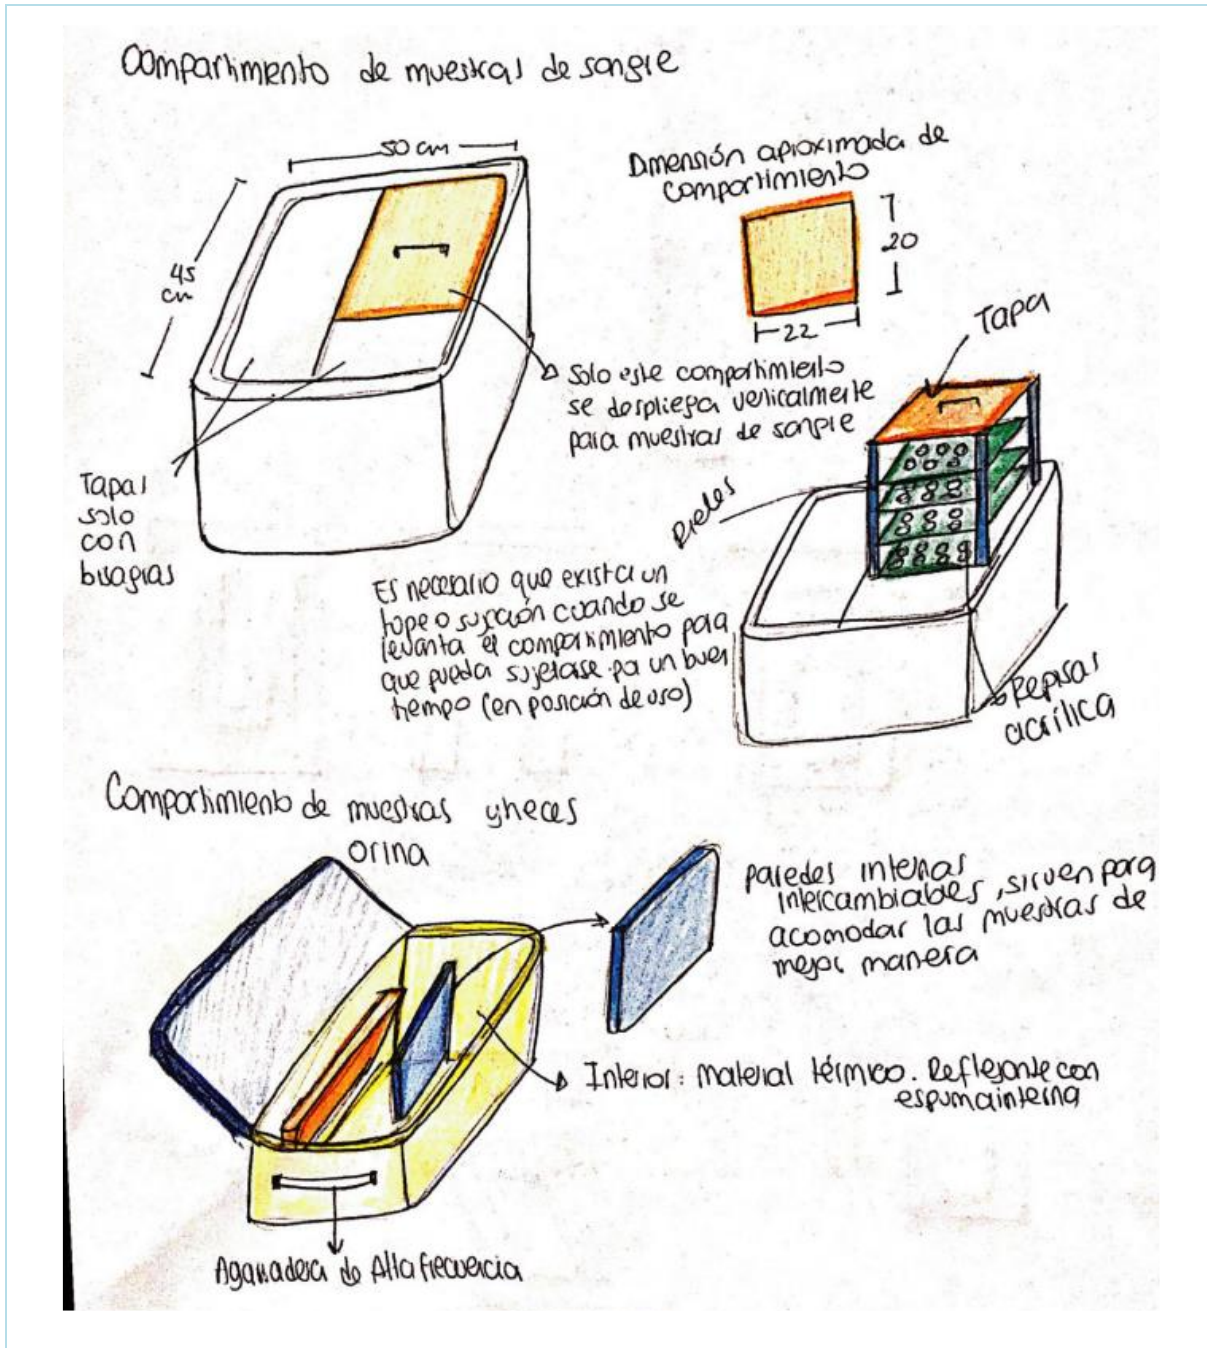 Compartimiento de muestras de sangre
50 cm
45
cm
Tapas
solo
con
bisagras
Dimensión aproximada de
compartimiento
20
22
Solo este compartimiento
se despliega verticalmente
para muestras de sangre
Tapa
Rieles
Repisas
acrílica
Es necesario que exista un
tope o sujeción cuando se
levanta el compartimento para
que pueda sujetarse pa un buen
tiempo (en posición de uso)
Compartimiento de muestras y heces
orina
paredes internas
intercambiables, sirven para
acomodar las muestras de
mejor manera
Interior: material térmico. Reflejante con
espuma interna
Agarradera de Alta frecuencia